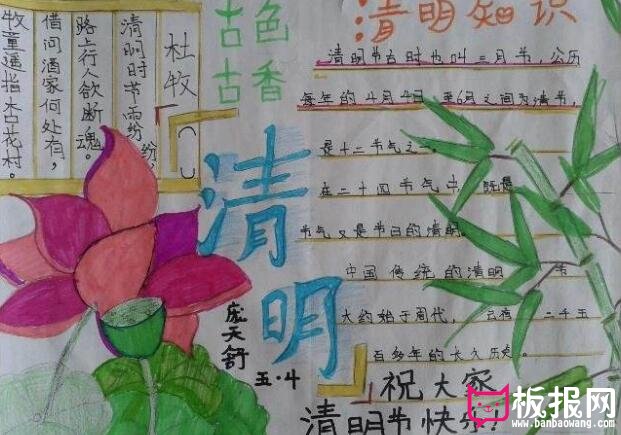 杜牧
清明时节雨纷纷
路上行人欲断魂。
借问酒家何处有,
牧童遥指杏花村。
古色
古香
清明
庞天舒
五·4
清明知识
清明节古时也叫三月节,公历
每年的4月4日 至6月之间为清节,
是十二节气之一
在二十四节气中
节气又是节日的清明
中国 传统 的清明 节
大约始于周代, 二千五
百多年的长久历史。
祝大家
清明节快乐!
板报网
www.banbaowang.com